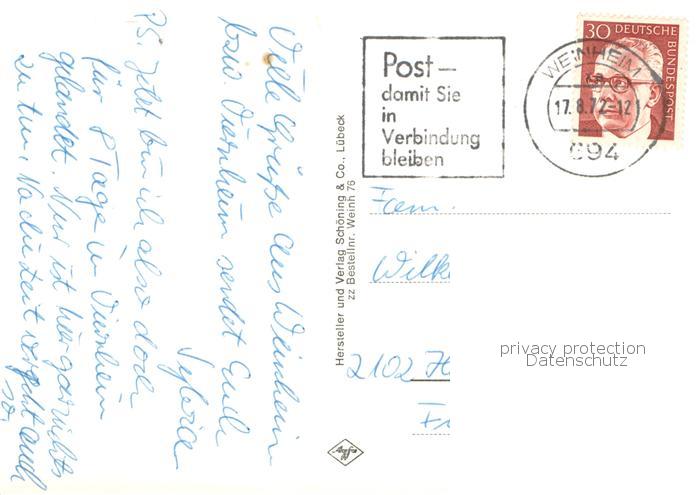 Viele Grüße aus Weinheim
bzw Viernheim sendet Euch
Sylvia
PS. Jetzt bin ich also doch
für 8 Tage in Viernheim
gelandet. Nur ist hier gar nichts
zu tun. Na die Zeit vergeht auch
so.
Hersteller und Verlag Schöning & Co., Lübeck
zz Bestellnr. Weinh 76
Agfa
Post –
damit Sie
in
Verbindung
bleiben
WEINHEIM
17.8.72-12
694
30 DEUTSCHE
BUNDESPOST
Fam.
Wilk
2102 H
privacy protection
Datenschutz